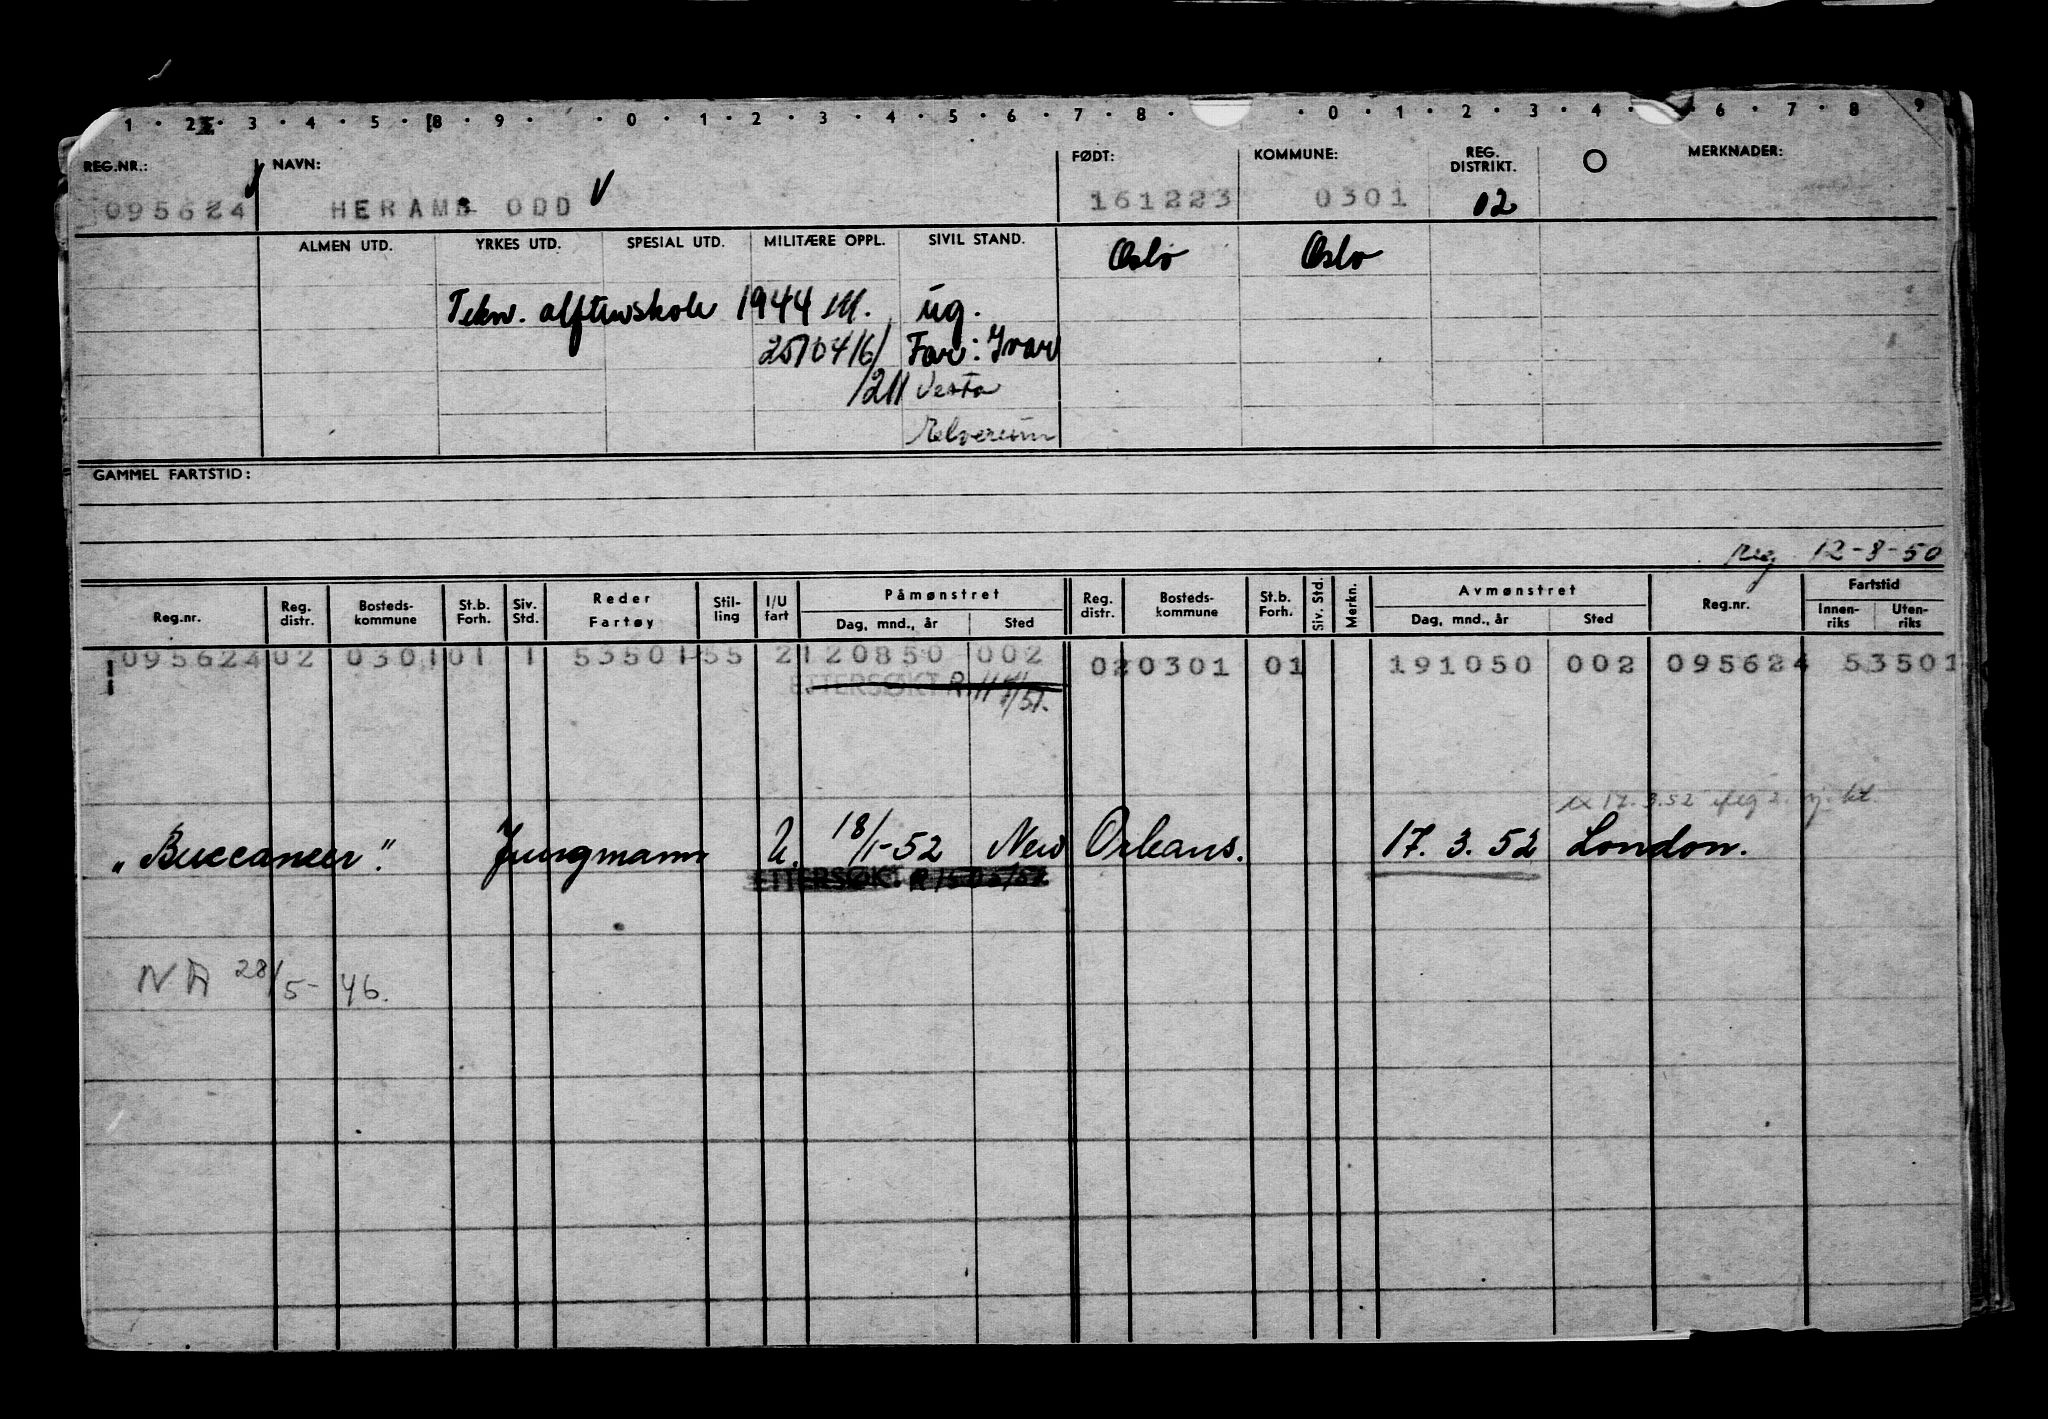 1 · 2 · 3 · 4 · 5 · 8 · 9 · · 0 · 1 · 2 · 3 · 4 · 5 · 6 · 7 · 8 · · 0 · 1 · 2 · 3 · 4 · · 6 · 7 · 8 · 9
REG.NR.: NAVN: FØDT: KOMMUNE: REG. DISTRIKT. O MERKNADER:
095624 HERAMB ODD V 161223 0301 02
ALMEN UTD. YRKES UTD. SPESIAL UTD. MILITÆRE OPPL. SIVIL STAND. Oslo Oslo
Tekn. aftenskole 1944 M. ug.
25104/6/ Far: Ivar
1211 Vesta
Elverum
GAMMEL FARTSTID:
Reg 12-8-50
Reg.nr. Reg. distr. Bosteds- kommune St.b. Forh. Siv. Std. Reder Fartøy Stil- ling I/U fart Påmønstret Dag, mnd., år Sted Reg. distr. Bosteds- kommune St.b. Forh. Siv. Std. Merkn. Avmønstret Dag, mnd., år Sted Reg.nr. Fartstid Innen- riks Uten- riks
095624 02 0301 01 1 53501 55 2 120850 002 02 0301 01 191050 002 095624 53501
ETTERSØKT R. 11/51.
17.3.52
„Buccaneer". Jungmann U. 18/1-52 New Orleans. 17. 3. 52 London.
ETTERSØKT R
NA 28/5-46.